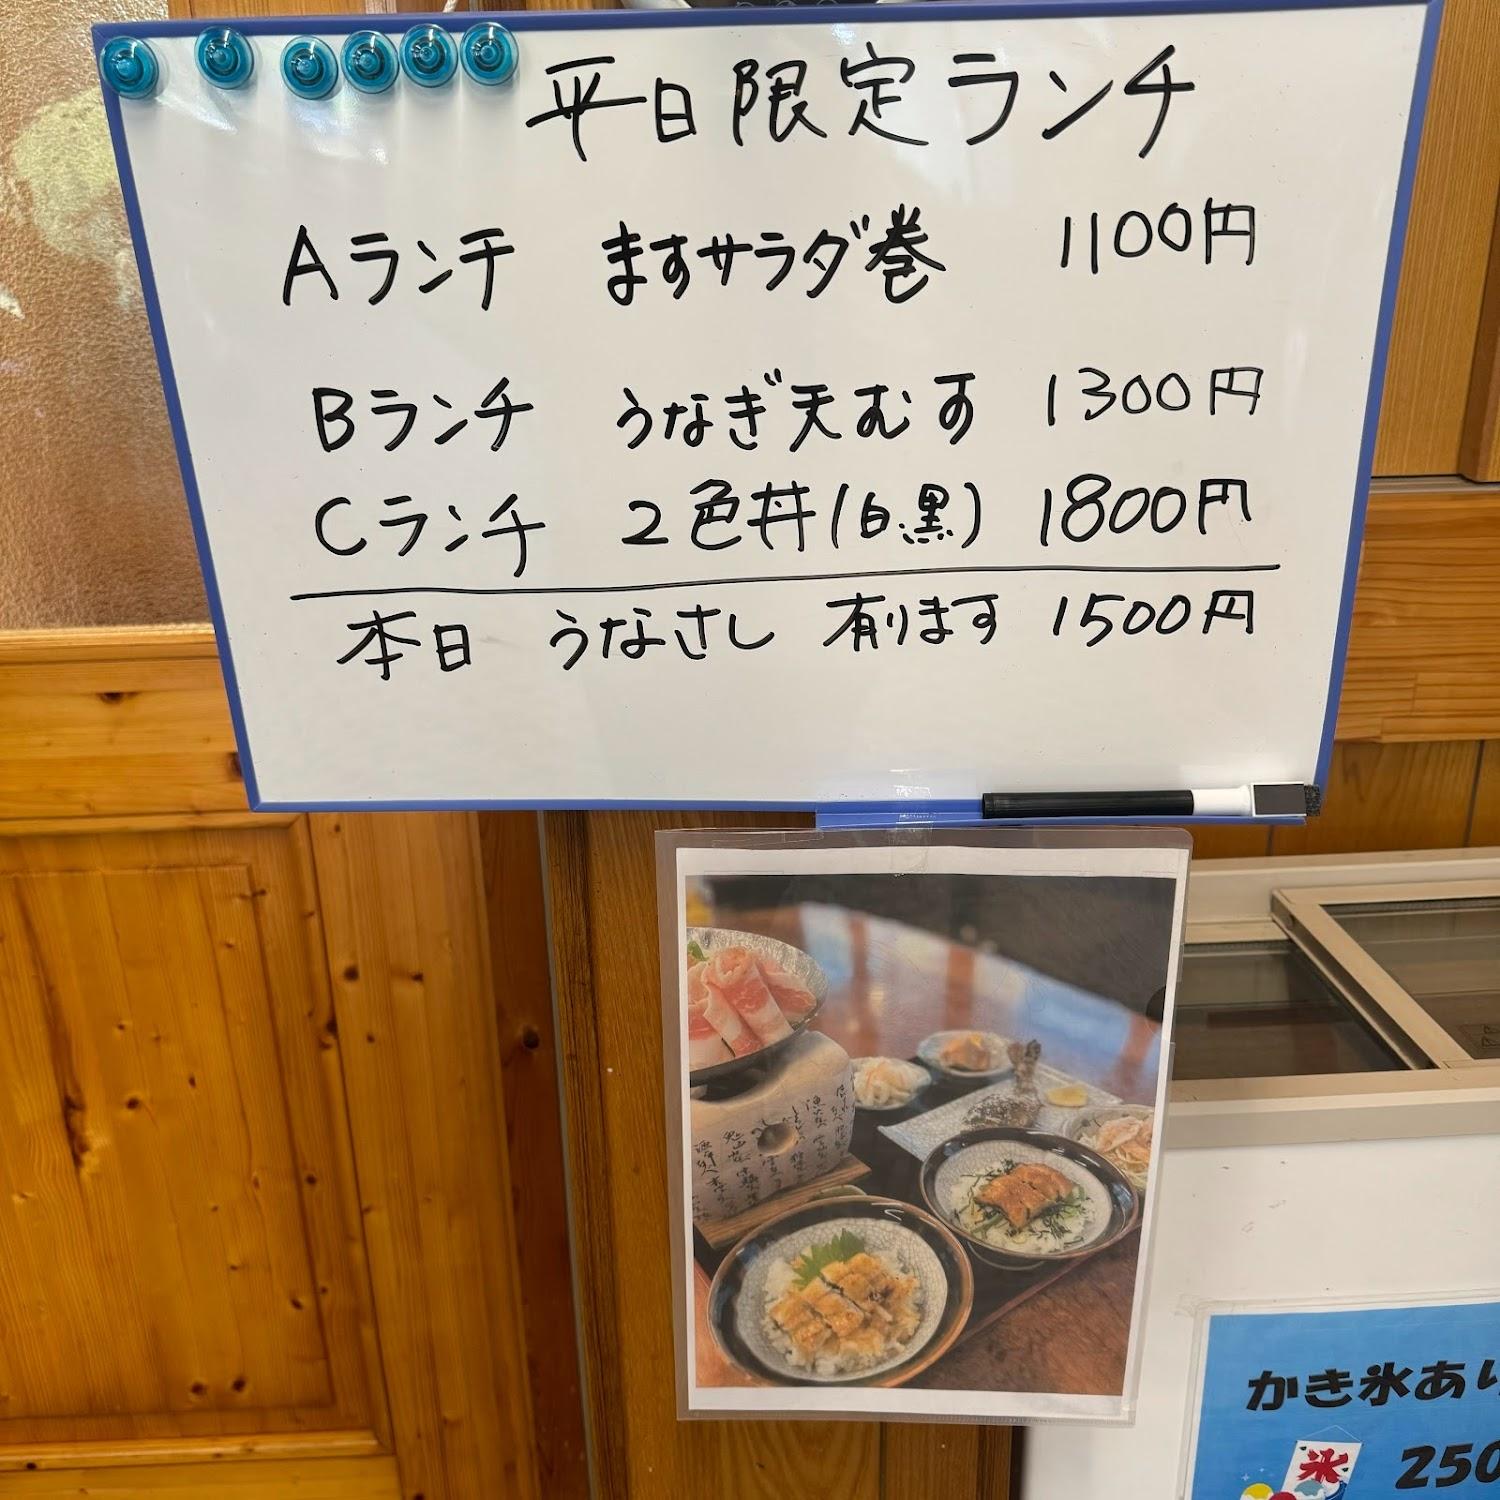 平日限定ランチ
Aランチ ますサラダ巻 1100円
Bランチ うなぎ天むす 1300円
Cランチ 2色丼(白.黒) 1800円
本日 うなさし 有ります 1500円
かき氷あり
氷
250